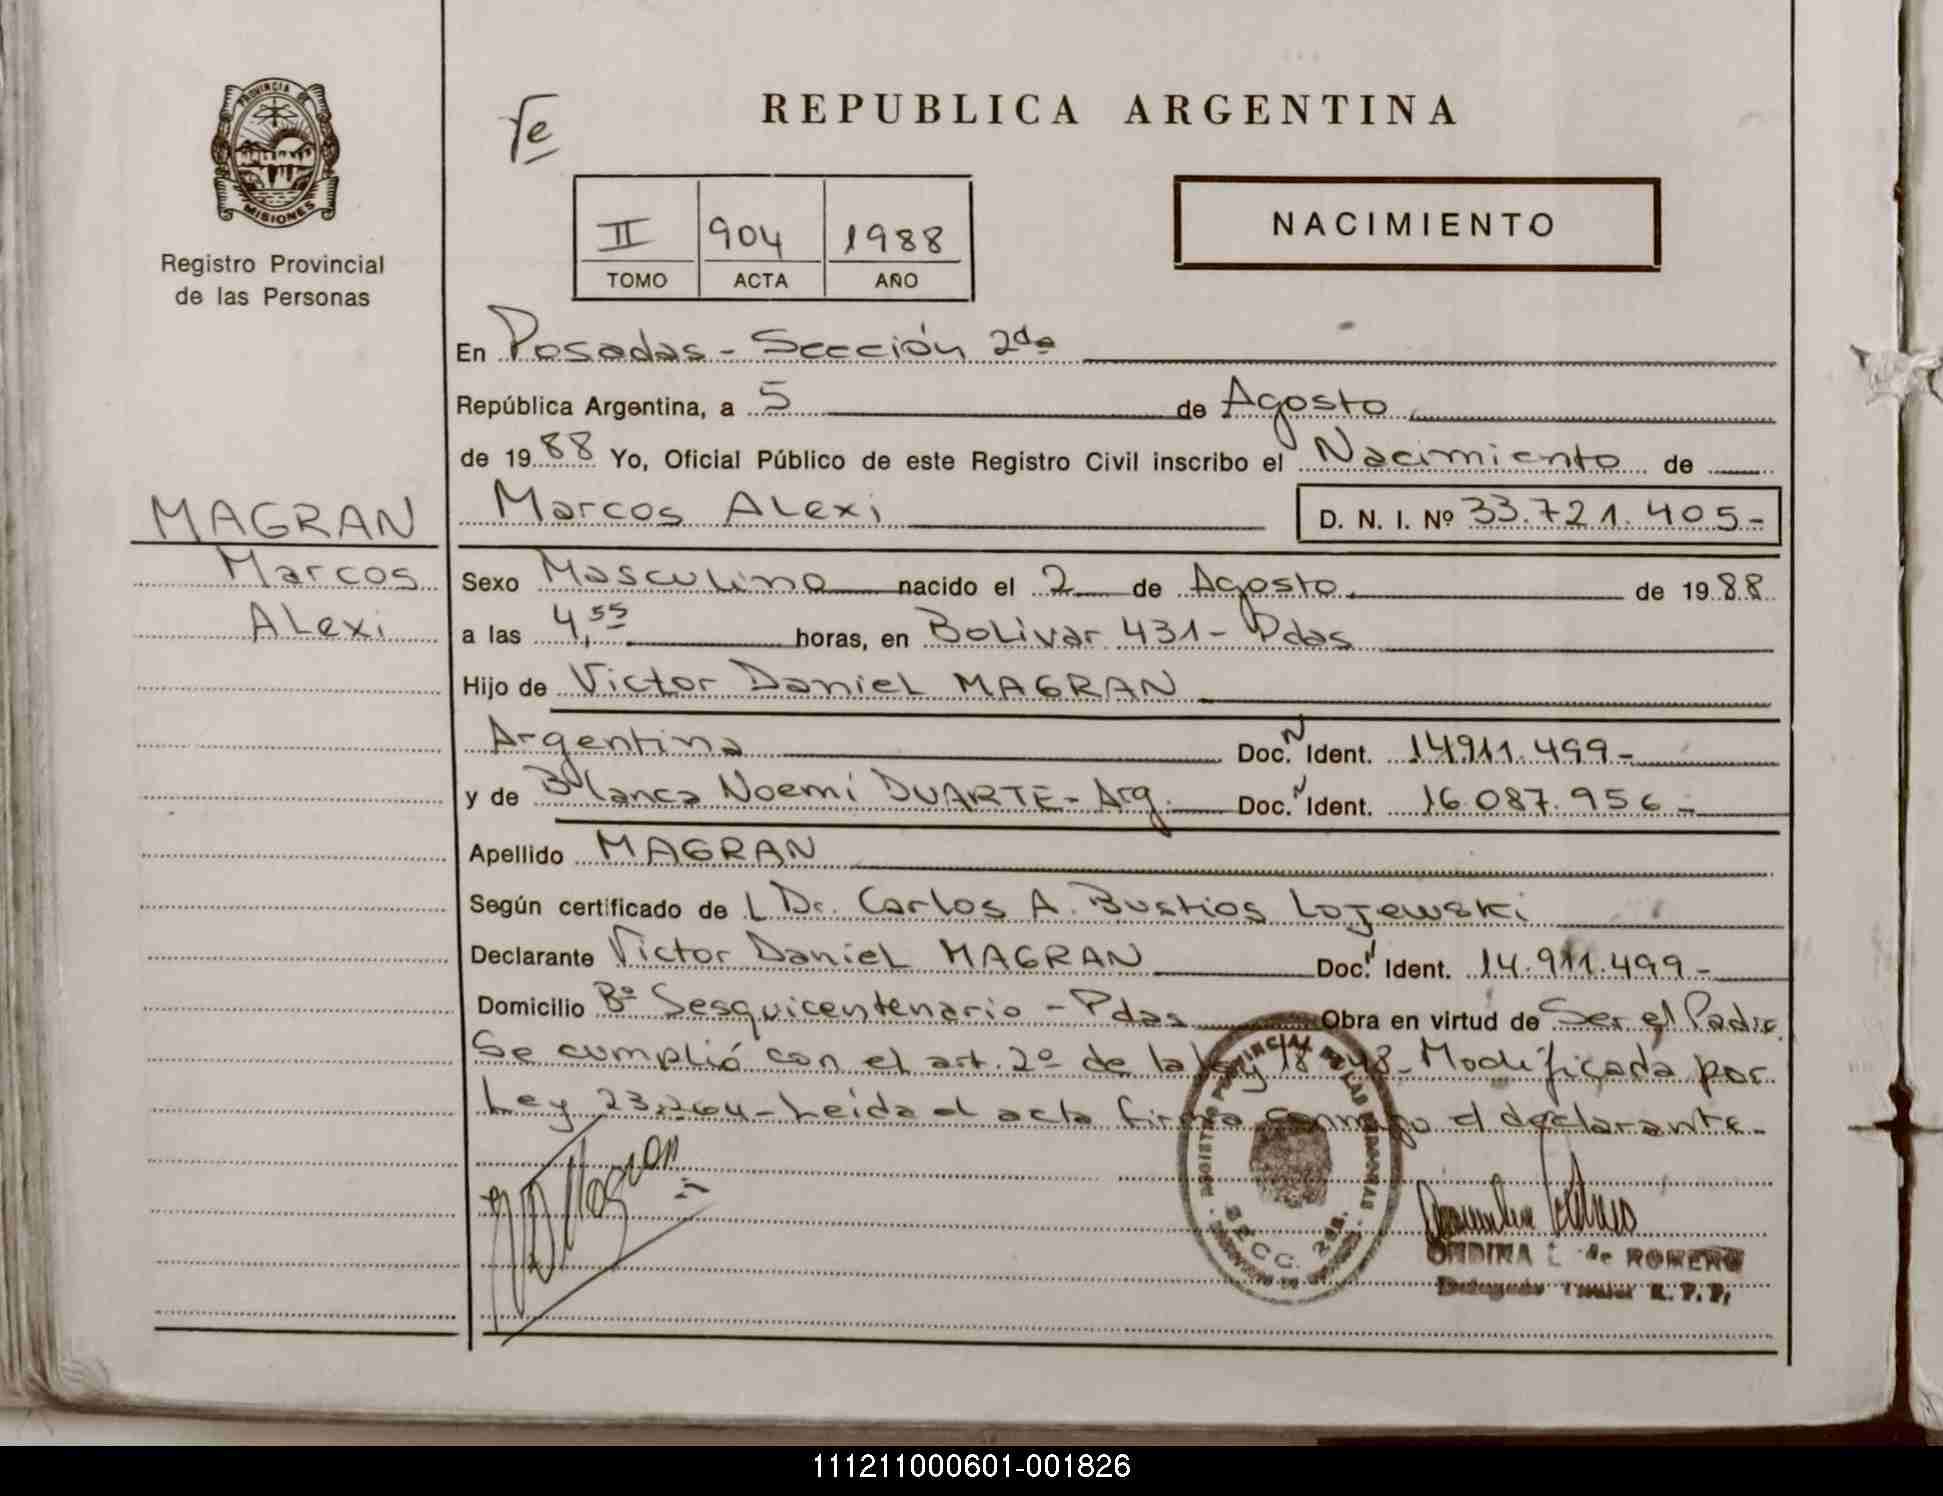 REPUBLICA ARGENTINA
PROVINCIA DE
MISIONES
Registro Provincial
de las Personas
II 904 1988
TOMO ACTA AÑO
NACIMIENTO
En Posadas - Sección 2da
República Argentina, a 5 de Agosto
de 1988 Yo, Oficial Público de este Registro Civil inscribo el Nacimiento de
MAGRAN
Marcos
Alexi
Marcos Alexi D. N. I. Nº 33.721.405-
Sexo Masculino nacido el 2 de Agosto de 1988
a las 4,55 horas, en Bolivar 431 - Pdas
Hijo de Victor Daniel MAGRAN
Argentina Doc. N Ident. 14.911.499-
y de Blanca Noemí DUARTE - Arg. Doc. N Ident. 16.087.956-
Apellido MAGRAN
Según certificado de L Dr. Carlos A. Bustios Lojewski
Declarante Victor Daniel MAGRAN Doc. N Ident. 14.911.499-
Domicilio Bº Sesquicentenario - Pdas Obra en virtud de Ser el Padre
Se cumplió con el art. 2º de la ley 18.248 - Modificada por
Ley 23.264 - Leída el acta firma conmigo el declarante -
SECC. 2da.
ONDINA L. de ROMERO
Delegado Titular R. P. P.
111211000601-001826